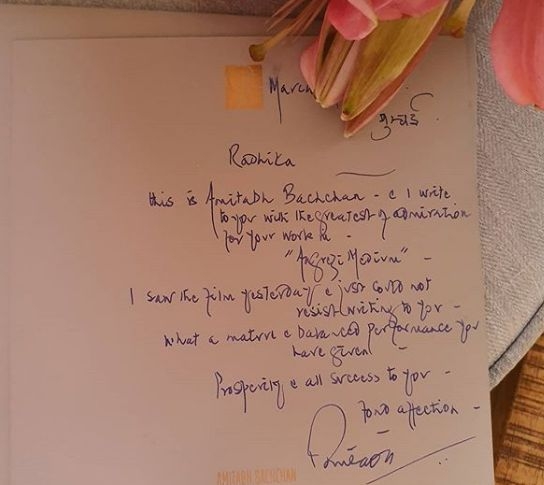 March
मुम्बई
Radhika
this is Amitabh Bachchan - & I write
to you with the greatest of admiration
for your work in -
"Angrezi Medium" -
I saw the film yesterday & just could not
resist writing to you -
what a mature & balanced performance you
have given -
Prosperity & all success to you -
fond affection -
AMITABH BACHCHAN